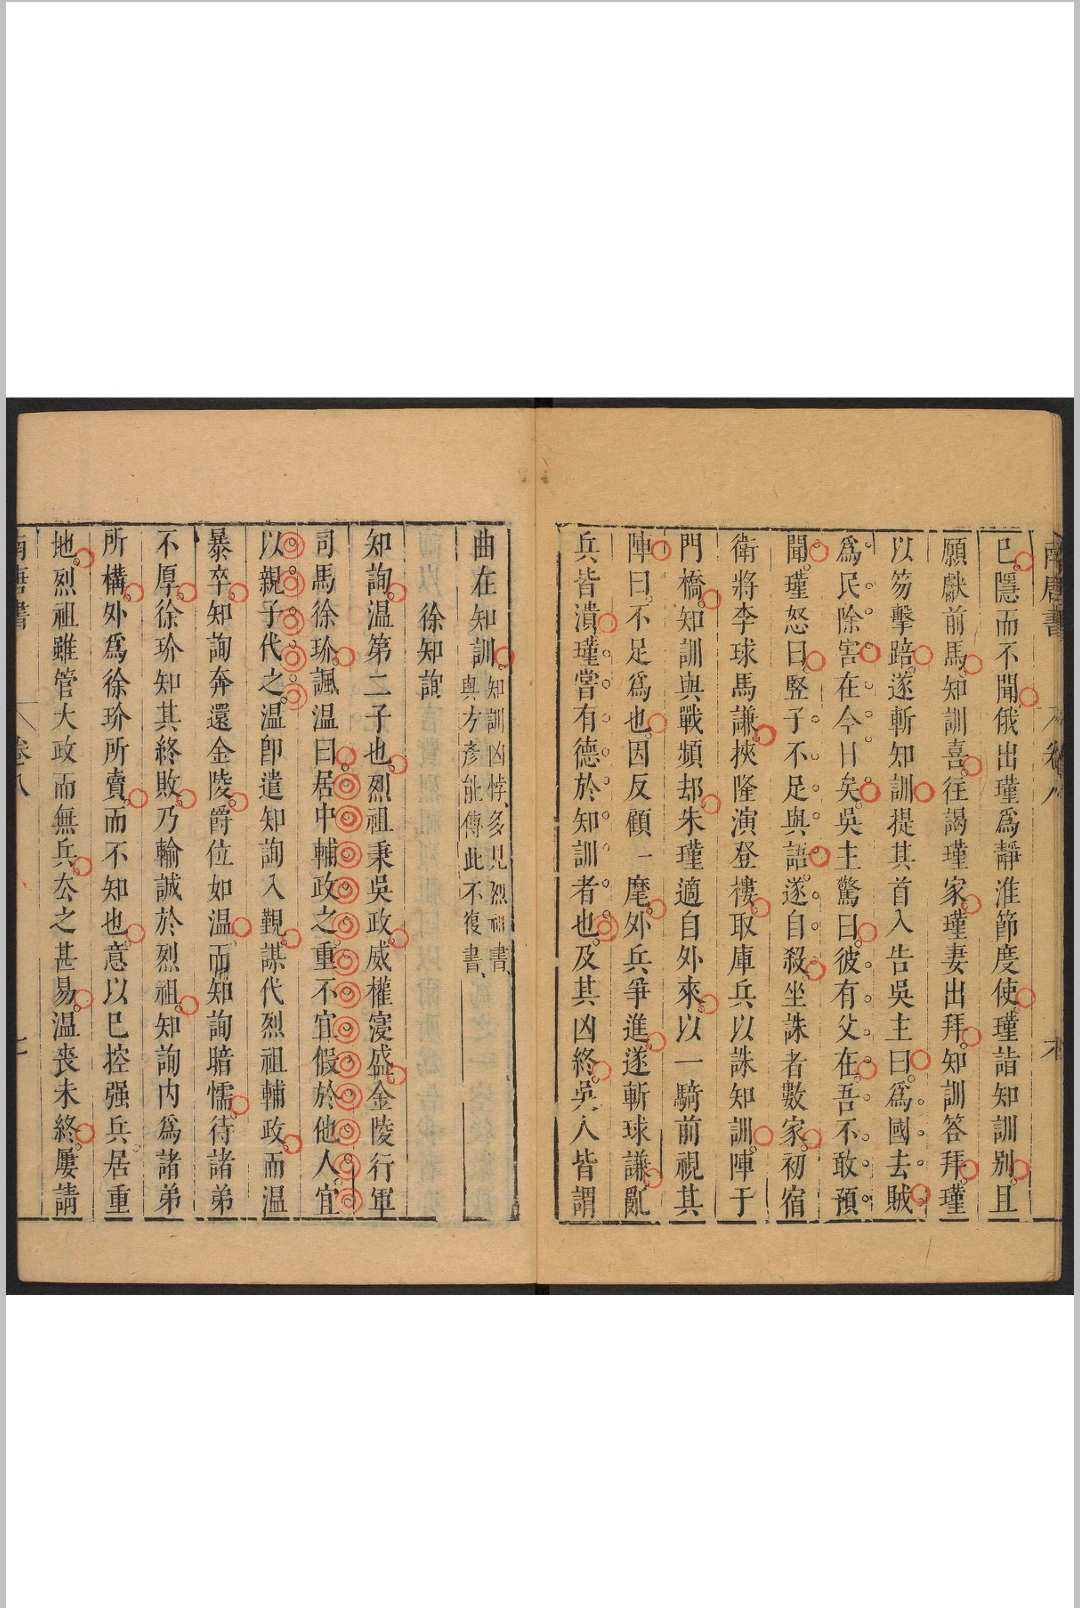 南唐書 卷八
已隱而不聞俄出瑾爲靜淮節度使瑾詣知訓别且
願獻前馬知訓喜往謁瑾家瑾妻出拜知訓答拜瑾
以笏擊踣遂斬知訓提其首入告吳主曰爲國去賊
爲民除害在今日矣吳主驚曰彼有父在吾不敢預
聞瑾怒曰竪子不足與語遂自殺坐誅者數家初宿
衛將李球馬謙挾隆演登樓取庫兵以誅知訓陣于
門橋知訓與戰頻却朱瑾適自外來以一騎前視其
陣曰不足爲也因反顧一麾外兵爭進遂斬球謙亂
兵皆潰瑾嘗有德於知訓者也及其凶終吳人皆謂
曲在知訓知訓凶悖多見烈祖書
與方彥能傳此不復書
徐知詢
知詢温第二子也烈祖秉吳政威權寖盛金陵行軍
司馬徐玠諷温曰居中輔政之重不宜假於他人宜
以親子代之温卽遣知詢入覲謀代烈祖輔政而温
暴卒知詢奔還金陵爵位如温而知詢暗懦待諸弟
不厚徐玠知其終敗乃輸誠於烈祖知詢内爲諸弟
所構外爲徐玠所賣而不知也意以已控强兵居重
地烈祖雖管大政而無兵厺之甚易温喪未終屢請
南唐書 卷八 七